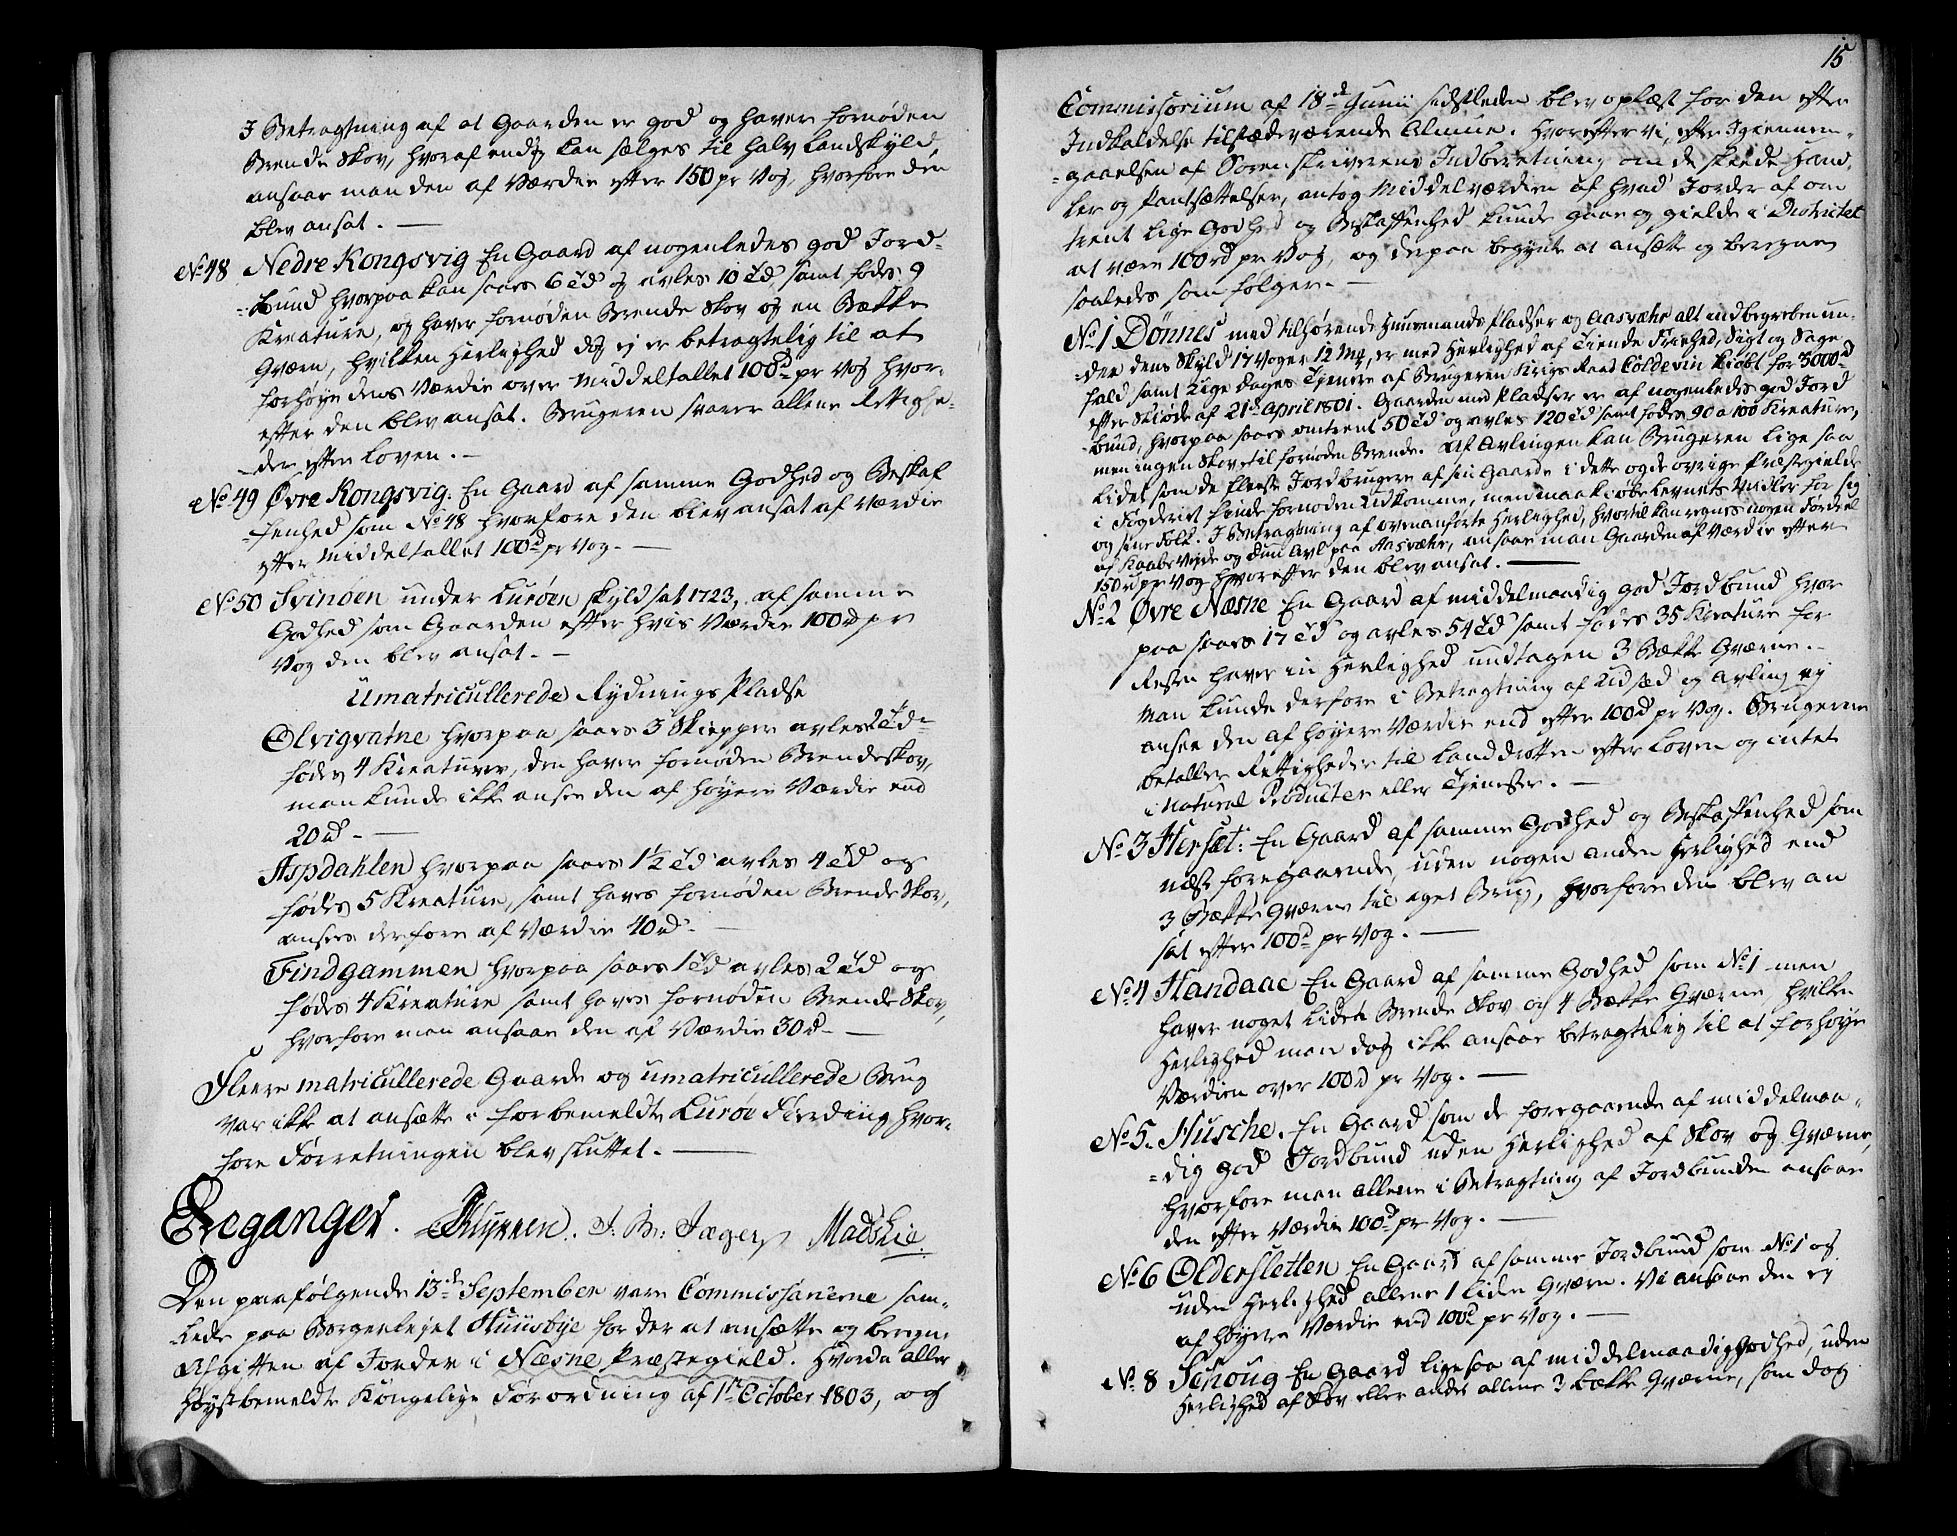 I Betragtning af at Gaarden er god og haver fornøden
Brende Skov, hvoraf endog kan sælges til halv Landskyld,
ansaae man den af Værdie efter 150 pr Vog, hvorfore den
blev ansat. —
No 48 Nedre Kongsvig En Gaard af nogenledes god Jord-
-bund hvorpaa kan saaes 6 Td og avles 10 Td, samt fødes 9
Kreature, og haver fornøden Brende Skov og en Bække
Qværn, hvilken Herlighed dog ej er betragtelig til at
forhøye dens Værdie over Middeltallet 100 d pr Vog hvor-
efter den blev ansat. Brugeren svarer allene Rettighe-
-der efter Loven. —
No 49 Øvre Kongsvig. En Gaard af samme Godhed og Beskaf
-fenhed som No 48 hvorfore den blev ansat af Værdie
efter Middeltallet 100 d pr Vog. —
No 50 Svinøen under Lurøen skyldsat 1723, af samme
Godhed som Gaarden efter hvis Værdie 100 rd pr
Vog den blev ansat. —
Umatricullerede Rydnings Pladse
Olvigvatne hvorpaa saaes 3 Skiepper avles 2 Td
fødes 4 Kreaturer, den haver fornøden Brendeskov,
man kunde ikke ansee den af høyere Værdie end
20 rd. —
Aspdahlen hvorpaa saaes 1½ Td avles 4 Td og
fødes 5 Kreature, samt haves fornøden Brende Skov,
ansees derfore af Værdie 40 rd. —
Findgammen hvorpaa saaes 1 Td avles 2 Td og
fødes 4 Kreature samt haves fornøden Brende Skov,
hvorfore man ansaae den af Værdie 30 d. —
Fleere matricullerede Gaarde og umatricullerede Brug
var ikke at ansætte i forbemeldte Lurøe Fierding hvor-
fore Forretningen blev sluttet. —
J. M. Jæger Mads Lie
Den paafølgende 13de September vare Commissairerne sam-
-lede paa Borgerlejet Huusbye for der at ansætte og beregne
Afgiften af Jorder i Næsne Præstegield. Hvorda aller
høystbemeldte Kongelige Forordning af 1te October 1803, og
15
Commissorium af 18d Junii sidstleden blev oplæst for den efter
Indkaldelse tilstædeværende Almue. Hvorefter vi, efter Igiennem-
-gaaelsen af Sorenskriverens Indberetning om de skeede Hand-
ler og Pantsættelser, antog Middelværdien af hvad Jorder af om
trent lige Godhed og Beskaffenhed kunde gaae og gielde i Districtet
at være 100 rd pr Vog, og derpaa begynte at ansætte og beregne
saaledes som følger. —
No 1 Dönnes med tilhørende Huusmands Pladser og Aasværs alt indbegreben un-
-der dens Skyld 17 Voger 12 Mk, er med Herlighed af Tiende Friehed, Sigt og Sage
fald samt Lige Dages Tjeneste af Brugeren Krigs Raad Coldevin kiøbt for 3000 d
efter Skiøde af 21d April 1801. Gaarden med Pladser er af nogenledes god Jord
bund, hvorpaa saaes omtrent 50 Td og avles 120 Td samt fødes 90 a 100 Kreature,
men ingen Skov til fornøden Brende. Af Avlingen kan Brugeren lige saa
lidet som de fleeste Jordbrugere af sin Gaarde i dette og de øvrige Præstegielde
i Fogderiet finde fornøden Udkomme, men maa kiøbe Levnets Midler for sig
og sine Folk. I Betragtning af ovenanførte Herlighed, hvortil kan regnes nogen Fordeel
af Kaabeveyde og Duun Avl paa Aasværs, ansaae man Gaarden af Værdie efter
150 rd pr Vog hvorefter den blev ansat. —
No 2 Øvre Næsne En Gaard af middelmaadig god Jordbund hvor
paa saaes 17 Td og avles 54 Td samt fødes 35 Kreature for
Resten haver in Herlighed undtagen 3 Bække Qværne. —
Man kunde derfore i Betragtning af Udsæd og Avling ej
ansee den af høyere Værdie end efter 100 d pr Vog. Brugerne
betaller Rettigheder til Landdrotten efter Loven og intet
i Natural Producter eller Tjeneste. —
No 3 Hersæt: En Gaard af samme Godhed og Beskaffenhed som
næstforegaaende, uden nogen anden Herlighed end
3 Bække Qværne til eget Brug, hvorfore den blev an
sat efter 100 d pr Vog. —
No 4 Handaae En Gaard af samme Godhed som No 1 men
haver noget lidet Brende Skov og 4 Bække Qværne, hvilken
Herlighed man dog ikke ansaae betragtelig til at forhøye
Værdien over 100 d pr Vog. —
No 5. Husche. En Gaard som de foregaaende af middelmaa-
-dig god Jordbund uden Herlighed af Skov og Qværne,
hvorfore man allene i Betragtning af Jordbunden ansaae
den efter Værdie 100 d pr Vog. —
No 6 Oldersletten En Gaard af samme Jordbund som No 1 og
uden Herlighed allene 1 liden Qværn. Vi ansaae den ej
af høyere Værdie end 100 d pr Vog. —
No 8 En Gaard ligesaa af middelmaadig Godhed, uden
Herlighed af Skov eller andet allene 3 Bække Qværne, som dog